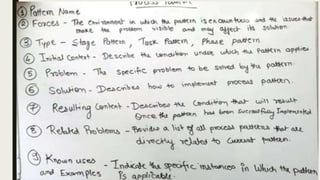 Process Pattern
① Pattern Name
② Forces - The Environment in which the pattern is encountered and the issues that
make the problem visible and may affect its solution.
③ Type - Stage Pattern, Task Pattern, Phase pattern.
④ Initial Context - Describe the condition under which the Pattern applies
⑤ Problem - The specific problem to be solved by the pattern.
⑥ Solution - Describes how to implement process pattern.
⑦ Resulting Context - Describes the Condition that will result
Once the pattern has been successfully Implemented
⑧ Related Problems - a list of all process patterns that are
directly related to current pattern.
⑨ Known uses
and Examples - Indicate the specific instances in which the pattern
Is applicable.